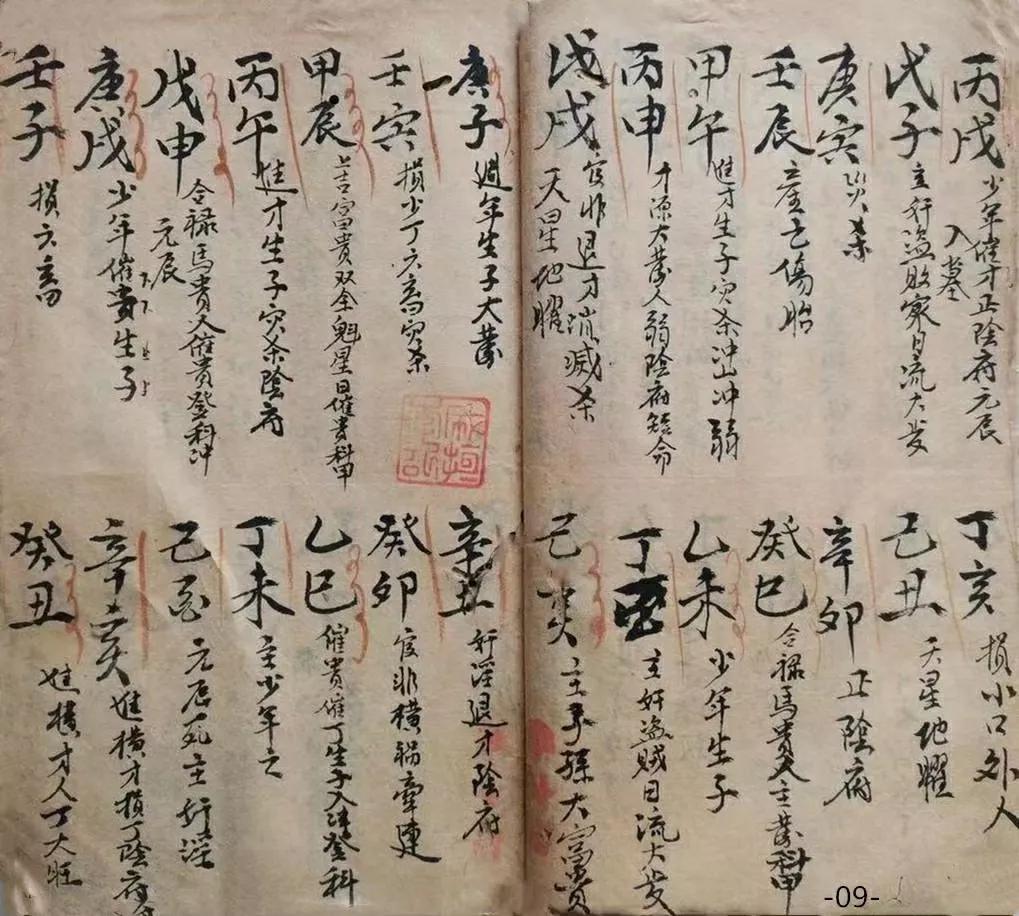 丙戌 少年催才正陰府元辰
入墓
戊子 主奸盜敗家日流大发
庚寅 災杀
壬辰 產亡傷胎
甲午 進才生子災杀冲山冲弱
丙申 才源大發人弱陰府短命
戊戌 官非退才消滅杀
天星地曜
丁亥 損小口外人
己丑 天星地曜
辛卯 正陰府
癸巳 合禄馬貴人主發科甲
乙未 少年生子
丁酉 主奸盜賊日流大发
己亥 主子孫大富貴
庚子 週年生子大發
壬寅 損少丁六畜災杀
甲辰 主富貴双全魁星日催貴科甲
丙午 進才生子災杀陰府
戊申 合禄馬貴人催貴登科冲
元辰
庚戌 少年催貴生子
壬子 損六畜
辛丑 奸淫退才陰府
癸卯 官非橫禍牽連
乙巳 催貴催丁生子入泮登科
丁未 主少年亡
己酉 元辰死主奸淫
辛亥 進橫才損丁陰府
癸丑 進橫才人丁大旺
-09-